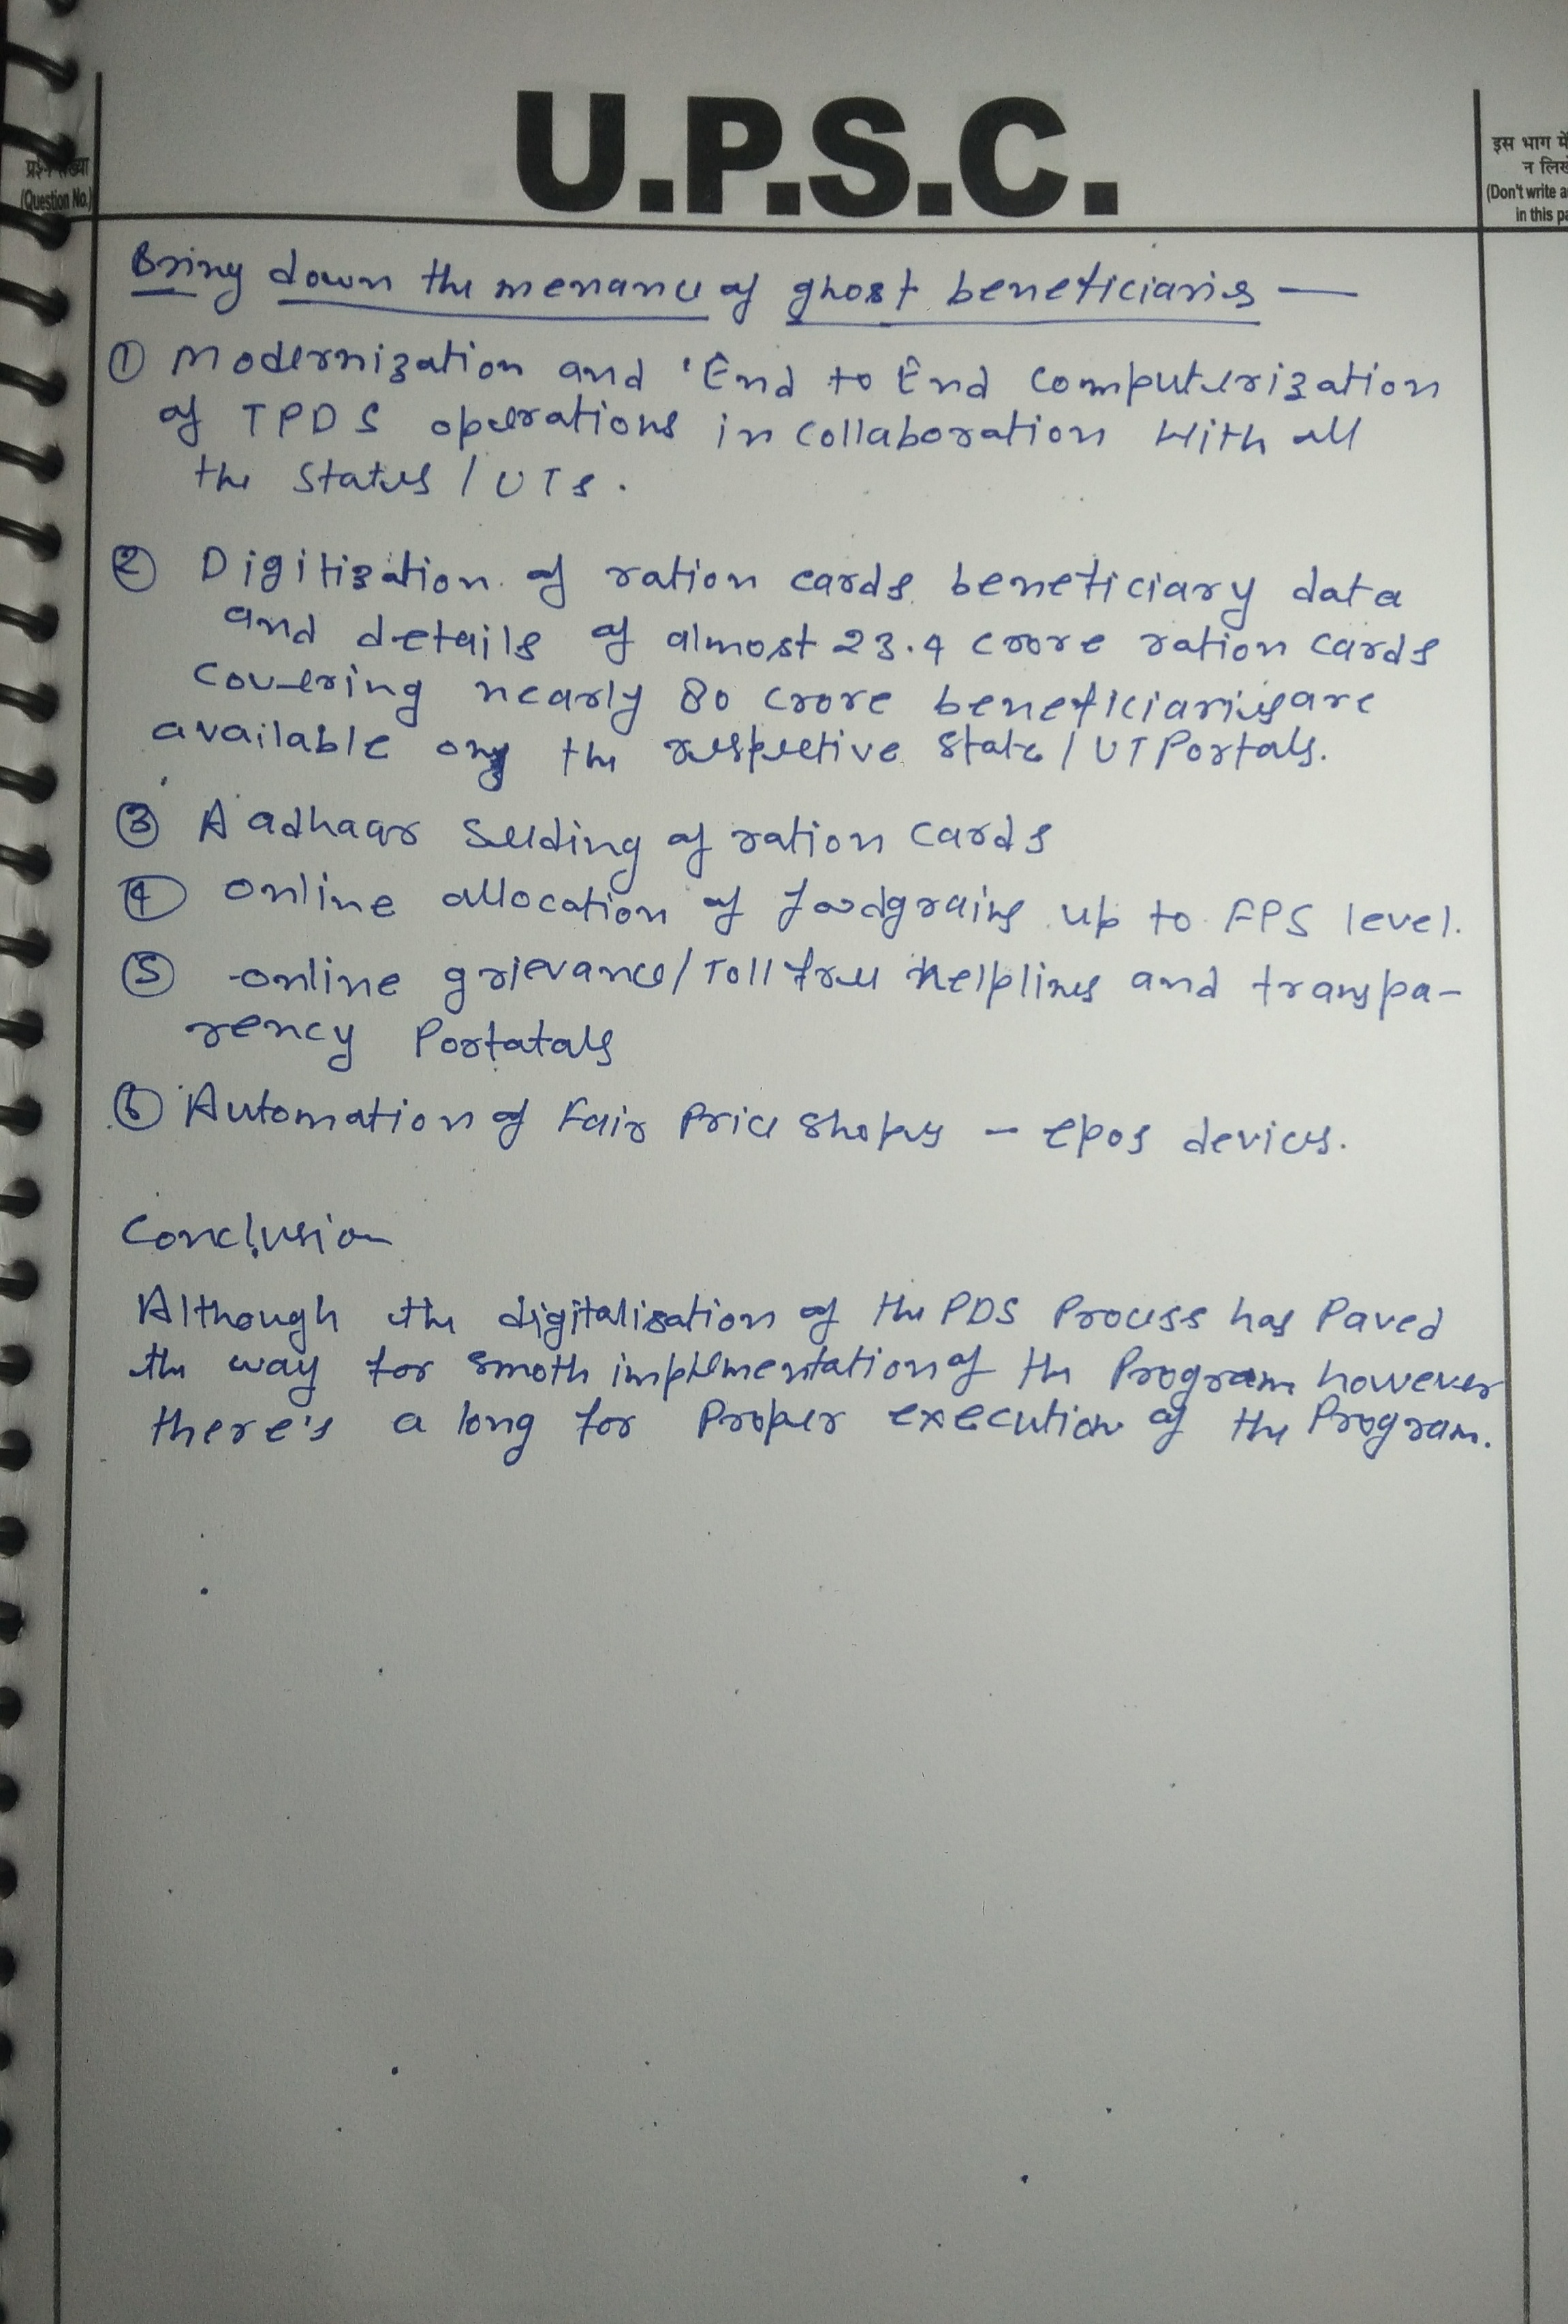 U.P.S.C.
प्रश्न संख्या
(Question No.)
इस भाग में
न लिखें
(Don't write a
in this pa
Bring down the menance of ghost beneficiaries —
① Modernization and 'End to End computerization
of TPDS operations in collaboration with all
the States / UTs.
② Digitization of ration cards beneficiary data
and details of almost 23.4 crore ration cards
covering nearly 80 crore beneficiaries are
available on the respective state / UT Portals.
③ Aadhaar seeding of ration cards
④ online allocation of foodgrains up to FPS level.
⑤ online grievance / Toll free helplines and transpa-
rency Portatals
⑥ Automation of Fair Price shops - epos devices.
Conclusion
Although the digitalisation of the PDS Process has Paved
the way for smoth implementation of the Program however
there's a long for Proper execution of the Program.